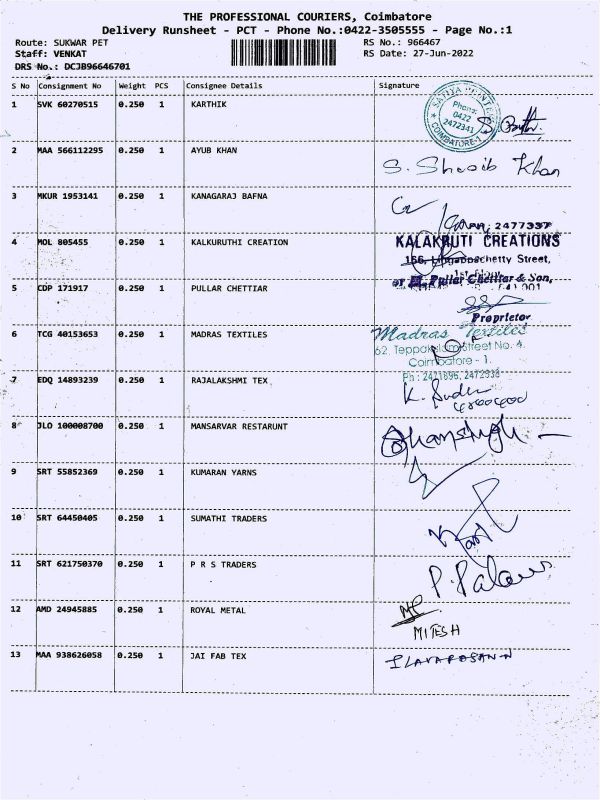 THE PROFESSIONAL COURIERS, Coimbatore
Delivery Runsheet - PCT - Phone No.:0422-3505555 - Page No.:1
Route: SUKWAR PET
RS No.: 966467
Staff: VENKAT
RS Date: 27-Jun-2022
DRS No.: DCJB96646701
S No Consignment No Weight PCS Consignee Details Signature
1 SVK 60270515 0.250 1 KARTHIK
SATIYA PRINTERS
Phone:
0422
2472341
COIMBATORE-1
2 MAA 566112295 0.250 1 AYUB KHAN
S. Shoaib Khan
3 MKUR 1953141 0.250 1 KANAGARAJ BAFNA
2477337
4 MOL 805455 0.250 1 KALKURUTHI CREATION
KALAKRUTI CREATIONS
Street,
5 CDP 171917 0.250 1 PULLAR CHETTIAR
Pullar Chettiar & Son,
Proprietor
6 TCG 40153653 0.250 1 MADRAS TEXTILES
Madras Textiles
62, Street No. 4,
Coimbatore - 1.
Ph : 2471896, 2472938
7 EDQ 14893239 0.250 1 RAJALAKSHMI TEX
8 JLO 100008700 0.250 1 MANSARVAR RESTARUNT
9 SRT 55852369 0.250 1 KUMARAN YARNS
10 SRT 64450405 0.250 1 SUMATHI TRADERS
11 SRT 621750370 0.250 1 P R S TRADERS
12 AMD 24945885 0.250 1 ROYAL METAL
MITESH
13 MAA 938626058 0.250 1 JAI FAB TEX